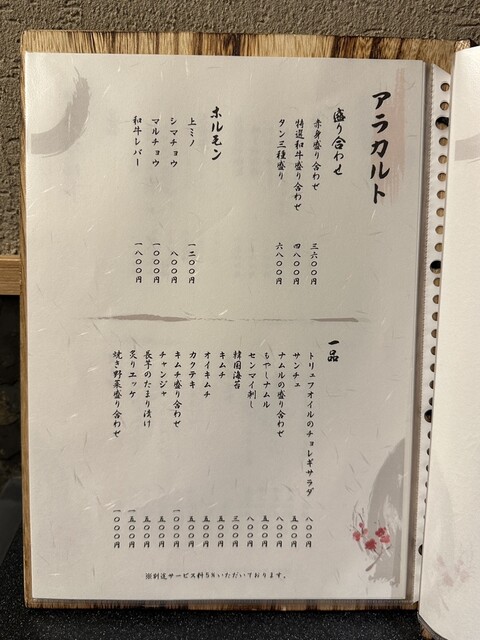 アラカルト
盛り合わせ
赤身盛り合わせ 三六〇〇円
特選和牛盛り合わせ 四八〇〇円
タン三種盛り 六八〇〇円
ホルモン
上ミノ 一二〇〇円
シマチョウ 八〇〇円
マルチョウ 一〇〇〇円
和牛レバー 一八〇〇円
一品
トリュフオイルのチョレギサラダ 八〇〇円
サンチュ 五〇〇円
ナムルの盛り合わせ 八〇〇円
もやしナムル 五〇〇円
センマイ刺し 八〇〇円
韓国海苔 三〇〇円
キムチ 五〇〇円
オイキムチ 五〇〇円
カクテキ 五〇〇円
キムチ盛り合わせ 一〇〇〇円
チャンジャ 五〇〇円
長芋のたまり漬け 五〇〇円
炙りエッケ 一五〇〇円
焼き野菜盛り合わせ 一〇〇〇円
※別途サービス料5%いただいております。